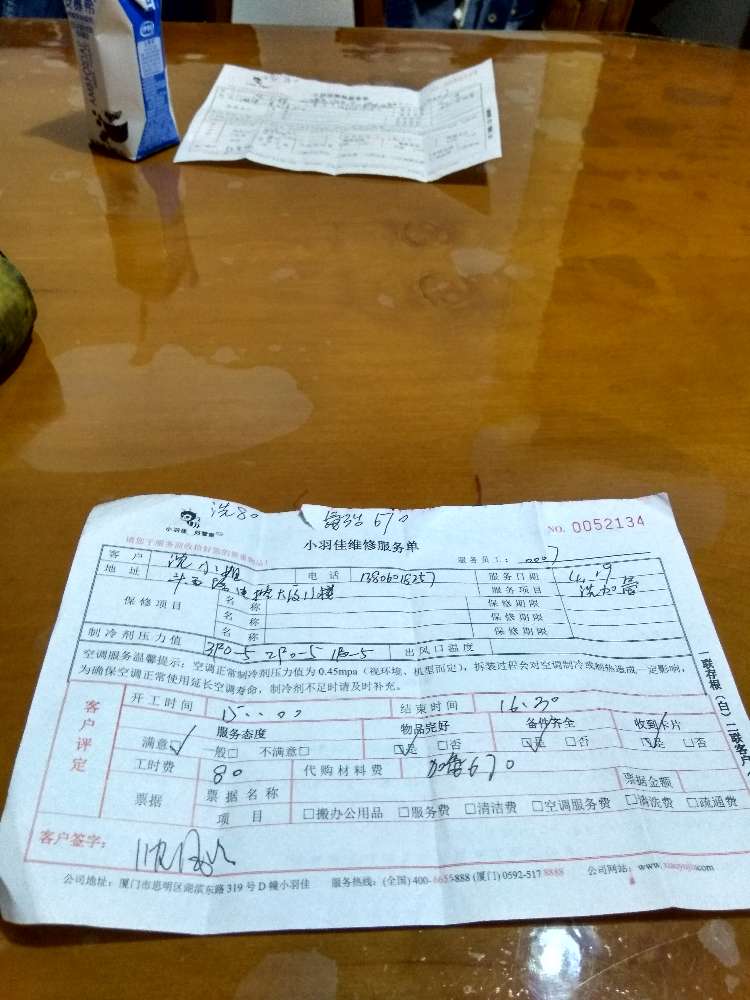 洗80 加雪670
小羽佳 好管家
NO. 0052134
请您于服务前收拾好您的贵重物品!
小羽佳维修服务单
服务员工: 0007
客户 沈小姐 电话 13806018257 服务日期 4.19
地址 服务项目 洗加雪
保修项目 名称 保修期限
名称 保修期限
名称 保修期限
制冷剂压力值 3P0-5 2P0-5 1P0-5 出风口温度
空调服务温馨提示:空调正常制冷剂压力值为0.45mpa(视环境、机型而定),拆装过程会对空调制冷或制热造成一定影响,
为确保空调正常使用延长空调寿命,制冷剂不足时请及时补充。
客户评定
开工时间 15:00 结束时间 16:30
服务态度 物品完好 备件齐全 收到卡片
满意☑ 一般□ 不满意□ ☑是 □否 ☑是 □否 ☑是 □否
工时费 80 代购材料费 加雪670
票据 票据名称 票据金额
项目 □搬办公用品 □服务费 □清洁费 □空调服务费 □清洗费 □疏通费
客户签字:
公司地址:厦门市思明区湖滨东路319号D幢小羽佳 服务热线:(全国)400-6655888 (厦门)0592-5178888 公司网站:www.xiaoyujia.com
一联存根(白)二联客户